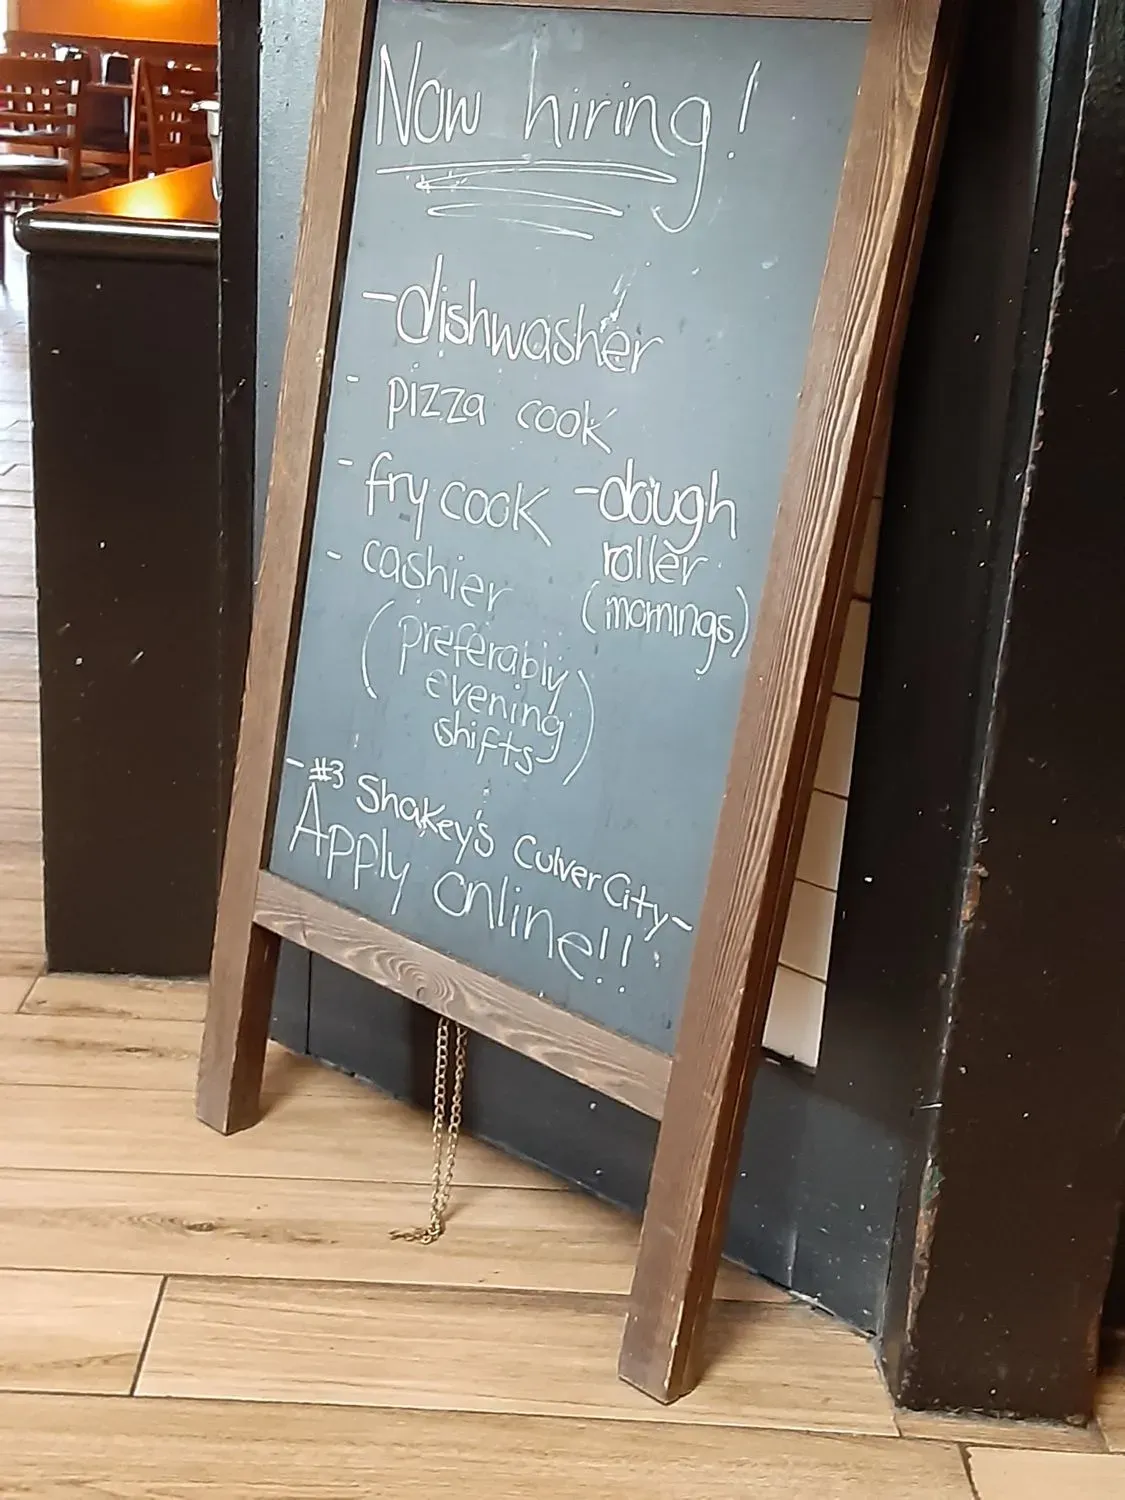 Now hiring!
- dishwasher
- pizza cook
- fry cook
- cashier
(preferably
evening
shifts)
- dough
roller
(mornings)
- #3 Shakey's Culver City -
Apply online!!